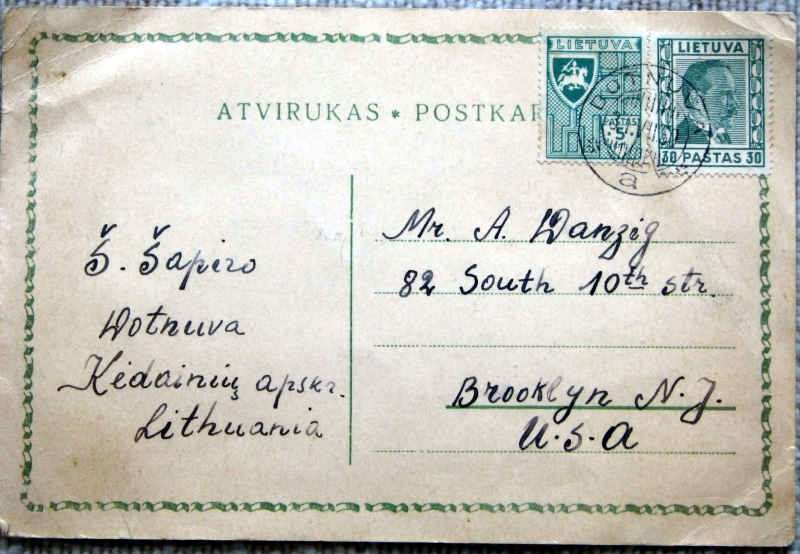 LIETUVA
PAŠTAS
5
LIETUVA
30 PAŠTAS 30
DOTNU
a
ATVIRUKAS * POSTKAR
Š. Šapiro
Dotnuva
Kėdainių apskr.
Lithuania
Mr. A. Danzig
82 South 10th str.
Brooklyn N.J.
U.S.A